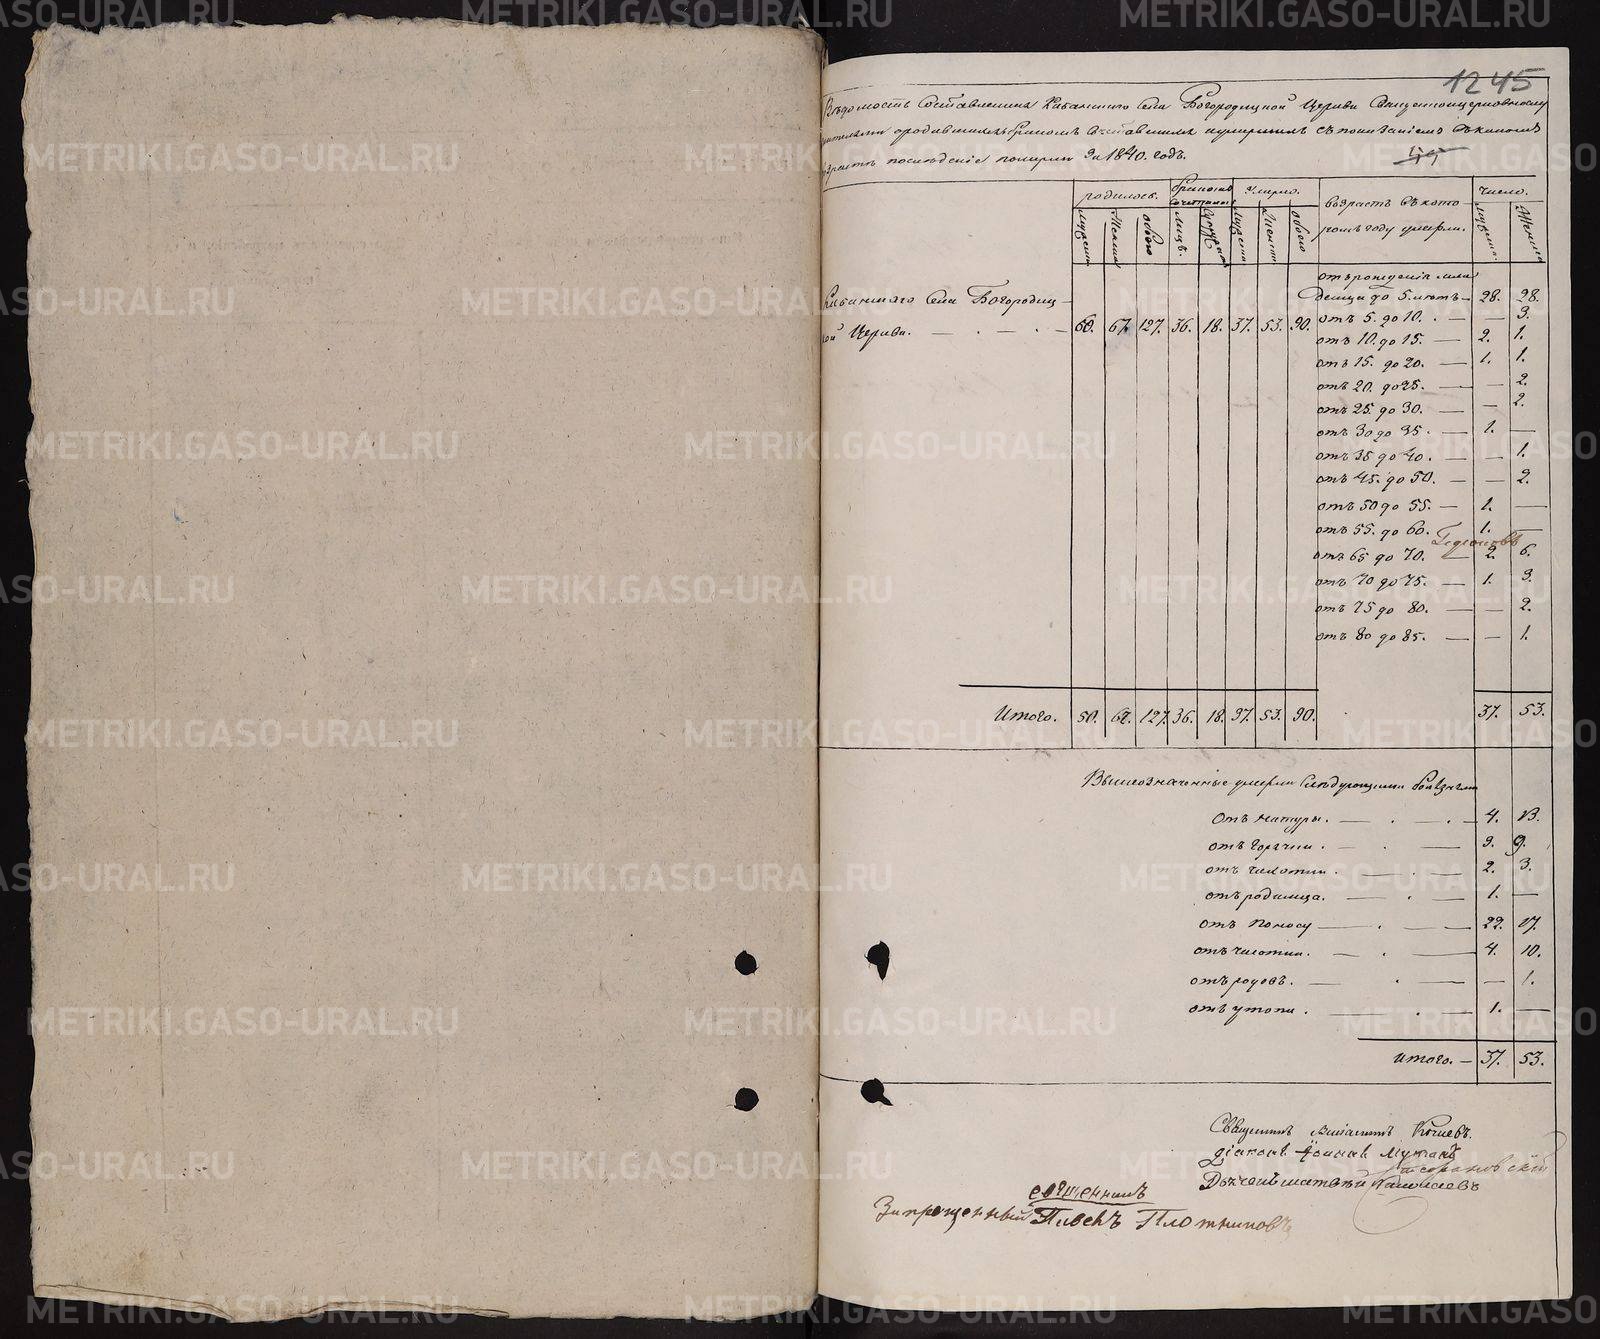 1245
Вѣдомость Составленна Кабанского Села Богородицкой Церкви Священноцерковнослу
жителями о родившихся бракомъ сочетавшихся и умершихъ съ показаніемъ въ какомъ
возрастѣ послѣдніе померли за 1840. годъ.
родилось.
бракомъ сочетались
Умерло.
возрастъ въ кото
ромъ году умерли.
число.
Мужеска
Женска
обоего
Лицъ.
Супружествъ
Мужеска
Женска
обоего
Мужеска.
Женска
отъ рожденія мла
денца до 5. лѣтъ — 28. 28.
Кабанскаго Села Богородиц —
кой Церкви. — . — . — 60. 67. 127. 36. 18. 37. 53. 90.
отъ 5. до 10. . — — 3.
отъ 10. до 15. — 2. 1.
отъ 15. до 20. — 1. 1.
отъ 20. до 25. — — 2.
отъ 25. до 30. — — 2.
отъ 30 до 35. — 1. —
отъ 35 до 40. — — 1.
отъ 45. до 50. — — 2.
отъ 50 до 55. — 1. —
отъ 55. до 60. 1. —
отъ 65 до 70. — 2. 6.
отъ 70 до 75. — 1. 3.
отъ 75 до 80. — — 2.
отъ 80 до 85. — — 1.
Итого. 50. 67. 127. 36. 18. 37. 53. 90. 37. 53.
Вышеозначенные умерли Слѣдующими болѣзнями
Отъ натуры. — . — . — 4. 13.
отъ горячки . — . — 3. 9.
отъ чахотки . — . — 2. 3.
отъ родимца. — . — 1. —
отъ поносу — . — 22. 17.
отъ чахотки. — . — 4. 10.
отъ родовъ. — . — — 1.
отъ утопа. — . — 1. —
Итого. — 37. 53.
Священникъ
діаконъ Іоаннъ
Дьячекъ Матвей
священникъ
Запрещенный Плотниковъ
METRIKI.GASO-URAL.RU